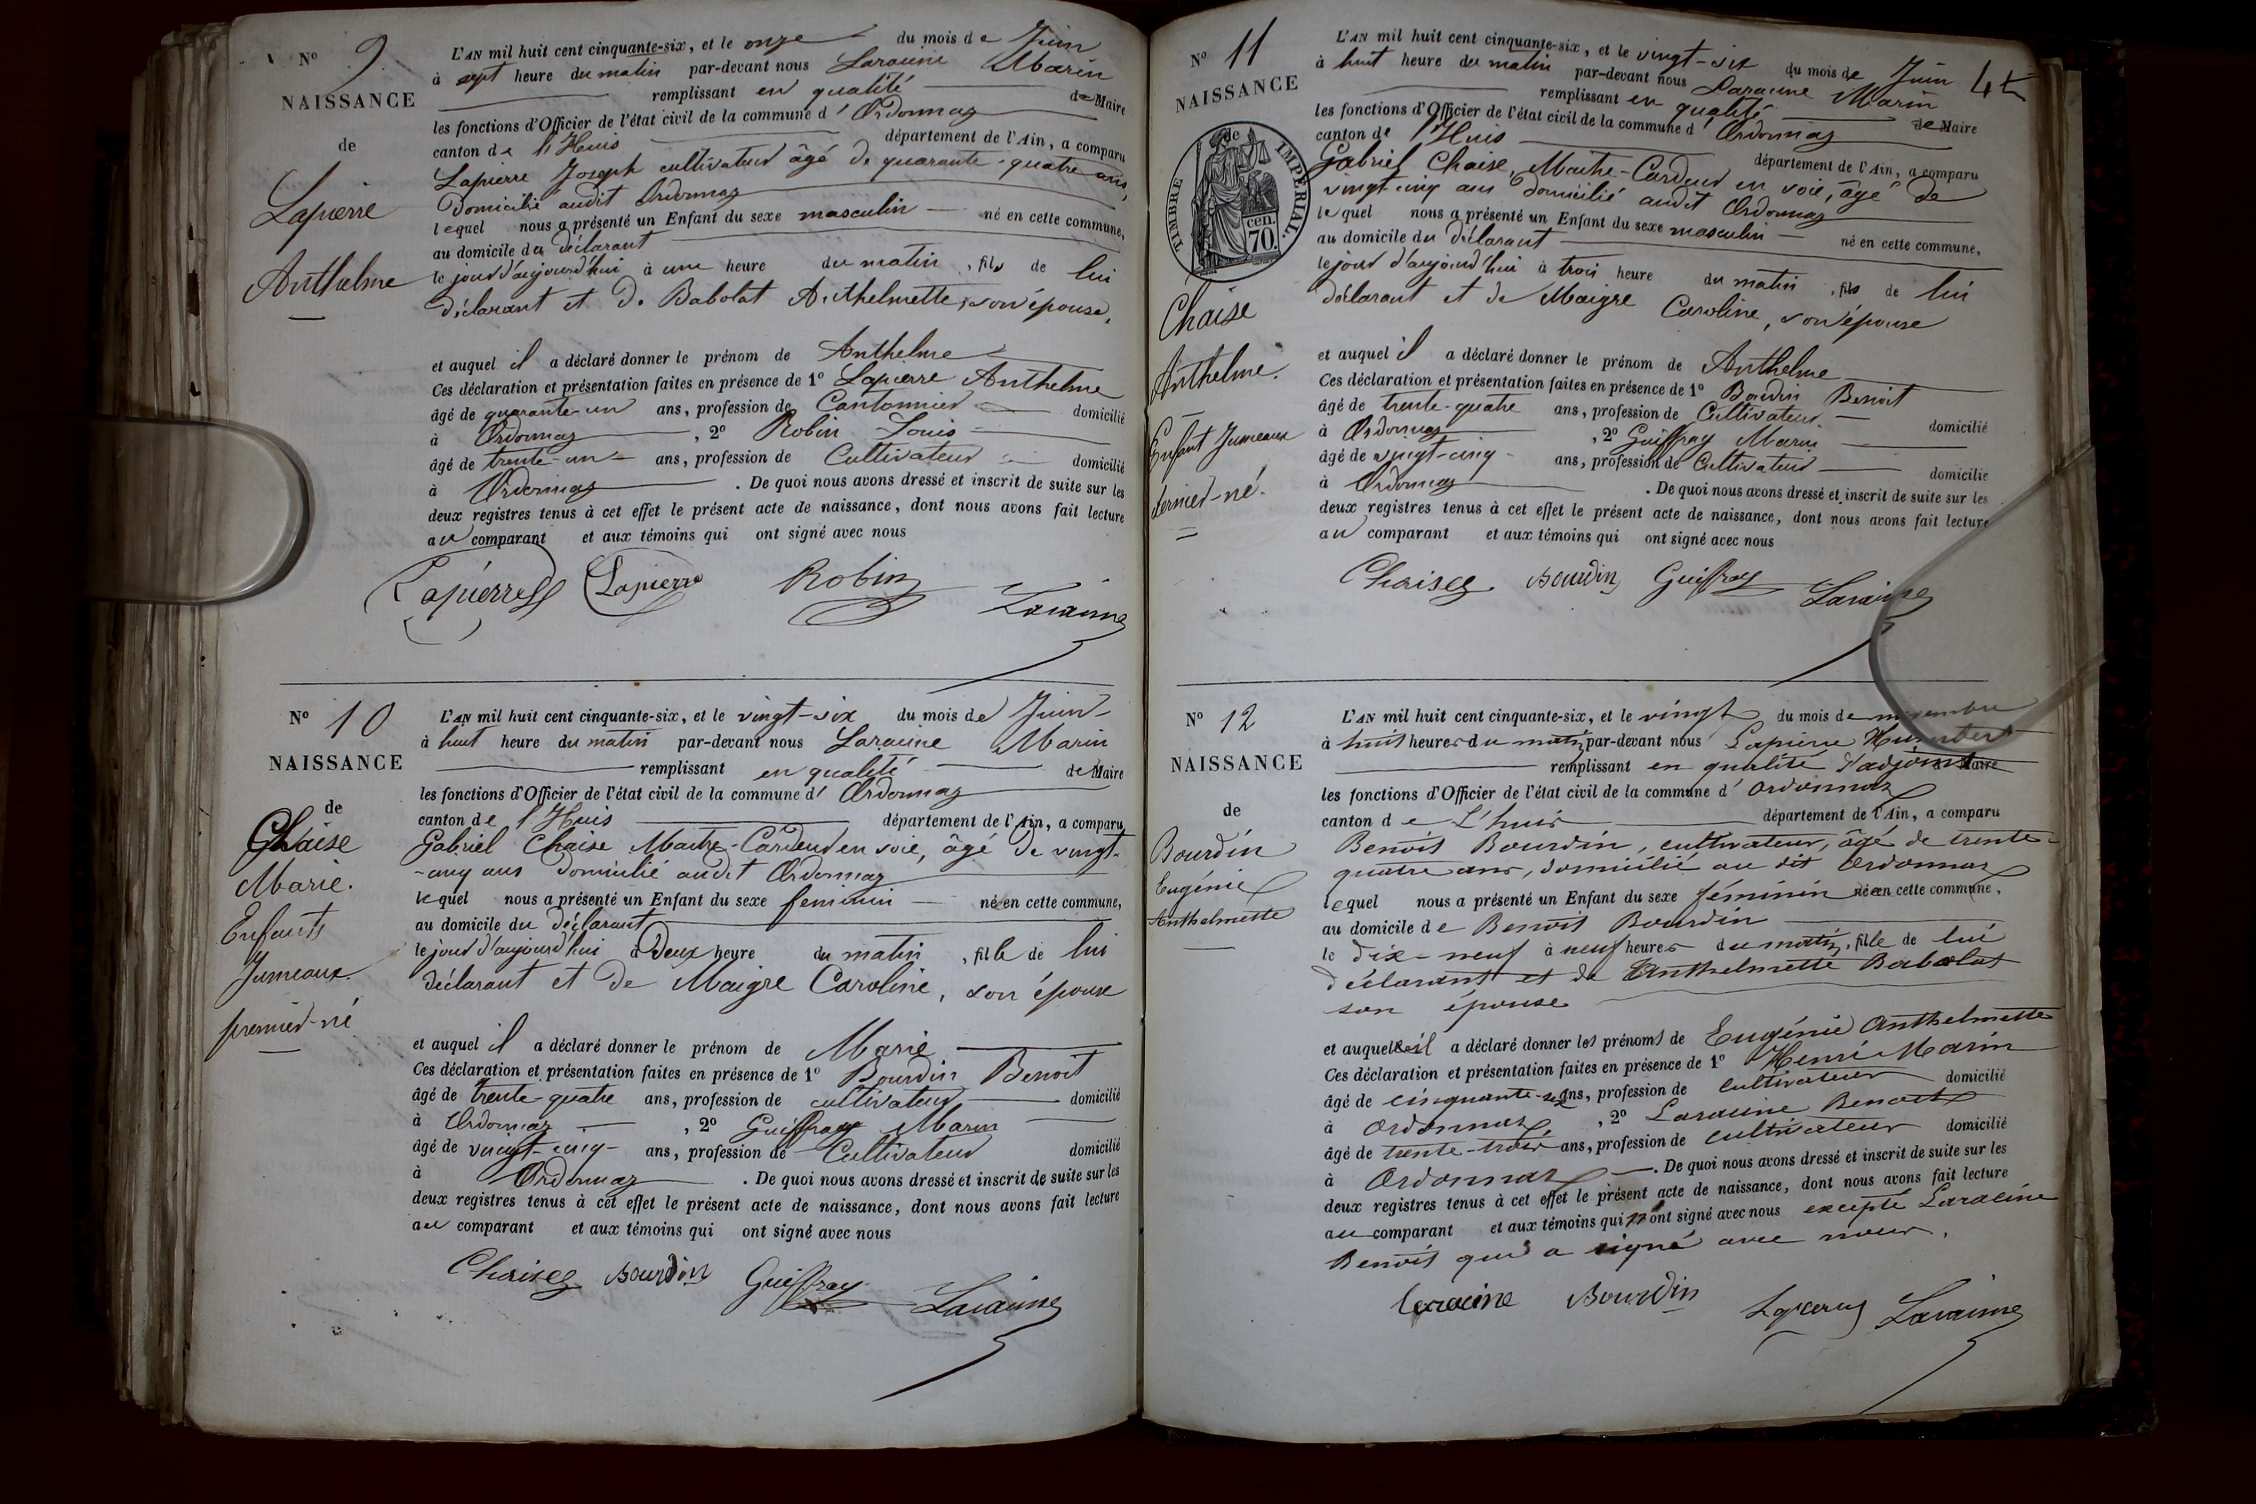 N° 9
NAISSANCE
de
Lapierre
Anthelme
L'AN mil huit cent cinquante-six, et le onze du mois de Juin
à sept heure du matin par-devant nous Laracine Marin
remplissant en qualité de Maire
les fonctions d'Officier de l'état civil de la commune d'Ordonnaz
canton de l'Huis département de l'Ain, a comparu
Lapierre Joseph cultivateur âgé de quarante-quatre ans,
domicilié audit Ordonnaz
lequel nous a présenté un Enfant du sexe masculin né en cette commune,
au domicile du déclarant
le jour d'aujourd'hui à une heure du matin, fils de lui
déclarant et de Babolat Anthelmette, son épouse,
et auquel il a déclaré donner le prénom de Anthelme
Ces déclaration et présentation faites en présence de 1° Lapierre Anthelme
âgé de quarante-un ans, profession de Cantonnier domicilié
à Ordonnaz, 2° Robin Louis
âgé de trente-un ans, profession de Cultivateur domicilié
à Ordonnaz. De quoi nous avons dressé et inscrit de suite sur les
deux registres tenus à cet effet le présent acte de naissance, dont nous avons fait lecture
au comparant et aux témoins qui ont signé avec nous
Lapierre Lapierre Robin Laracine
N° 10
NAISSANCE
de
Chaise
Marie.
Enfants
Jumeaux.
premier-né
L'AN mil huit cent cinquante-six, et le vingt-six du mois de Juin
à huit heure du matin par-devant nous Laracine Marin
remplissant en qualité de Maire
les fonctions d'Officier de l'état civil de la commune d'Ordonnaz
canton de l'Huis département de l'Ain, a comparu
Gabriel Chaise Maitre-Cardeur en soie, âgé de vingt-
-cinq ans domicilié audit Ordonnaz
lequel nous a présenté un Enfant du sexe feminin né en cette commune,
au domicile du déclarant
le jour d'aujourd'hui à Deux heure du matin, fille de lui
déclarant et de Maigre Caroline, son épouse
et auquel il a déclaré donner le prénom de Marie
Ces déclaration et présentation faites en présence de 1° Bourdin Benoit
âgé de trente-quatre ans, profession de cultivateur domicilié
à Ordonnaz, 2° Guiffray Marin
âgé de vingt-cinq ans, profession de Cultivateur domicilié
à Ordonnaz. De quoi nous avons dressé et inscrit de suite sur les
deux registres tenus à cet effet le présent acte de naissance, dont nous avons fait lecture
au comparant et aux témoins qui ont signé avec nous
Chaise Bourdin Guiffray Laracine
N° 11
NAISSANCE
de
TIMBRE IMPERIAL.
70 cen.
Chaise
Anthelme.
Enfant Jumeaux
dernier-né.
L'AN mil huit cent cinquante-six, et le vingt-six du mois de Juin
à huit heure du matin par-devant nous Laracine Marin
remplissant en qualité de Maire
les fonctions d'Officier de l'état civil de la commune d'Ordonnaz
canton de l'Huis département de l'Ain, a comparu
Gabriel Chaise, Maitre-Cardeur en soie, âgé de
vingt-cinq ans domicilié audit Ordonnaz
lequel nous a présenté un Enfant du sexe masculin né en cette commune,
au domicile du déclarant
le jour d'aujourd'hui à trois heure du matin, fils de lui
déclarant et de Maigre Caroline, son épouse
et auquel il a déclaré donner le prénom de Anthelme
Ces déclaration et présentation faites en présence de 1° Bourdin Benoit
âgé de trente-quatre ans, profession de Cultivateur domicilié
à Ordonnaz, 2° Guiffray Marin
âgé de vingt-cinq ans, profession de Cultivateur domicilié
à Ordonnaz. De quoi nous avons dressé et inscrit de suite sur les
deux registres tenus à cet effet le présent acte de naissance, dont nous avons fait lecture
au comparant et aux témoins qui ont signé avec nous
Chaise Bourdin Guiffray Laracine
N° 12
NAISSANCE
de
Bourdin
Eugénie
Anthelmette
L'AN mil huit cent cinquante-six, et le vingt du mois de novembre
à huit heures du matin par-devant nous Lapierre Humbert
remplissant en qualité d'adjoint de Maire
les fonctions d'Officier de l'état civil de la commune d'ordonnaz
canton de L'huis département de l'Ain, a comparu
Benoit Bourdin, cultivateur, âgé de trente-
quatre ans, domicilié au dit Ordonnaz
lequel nous a présenté un Enfant du sexe féminin né en cette commune,
au domicile de Benoit Bourdin
le dix-neuf à neuf heures du matin, fille de lui
déclarant et de Anthelmette Babolat
son épouse
et auquel il a déclaré donner les prénoms de Eugénie Anthelmette
Ces déclaration et présentation faites en présence de 1° Henri Marin
âgé de cinquante- ans, profession de cultivateur domicilié
à Ordonnaz, 2° Laracine Benoit
âgé de trente-trois ans, profession de cultivateur domicilié
à Ordonnaz. De quoi nous avons dressé et inscrit de suite sur les
deux registres tenus à cet effet le présent acte de naissance, dont nous avons fait lecture
au comparant et aux témoins qui n'ont signé avec nous excepté Laracine
Benoit qui a signé avec nous.
Laracine Bourdin Lapierre Laracine